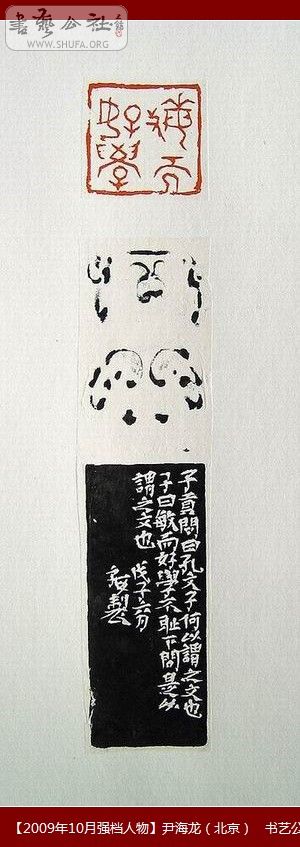 書藝公社
WWW.SHUFA.ORG
敏而
好學
子貢問曰孔文子何以謂之文也
子曰敏而好學不耻下問是以
謂之文也 戊子六月
製
【2009年10月强档人物】尹海龙（北京） 书艺公